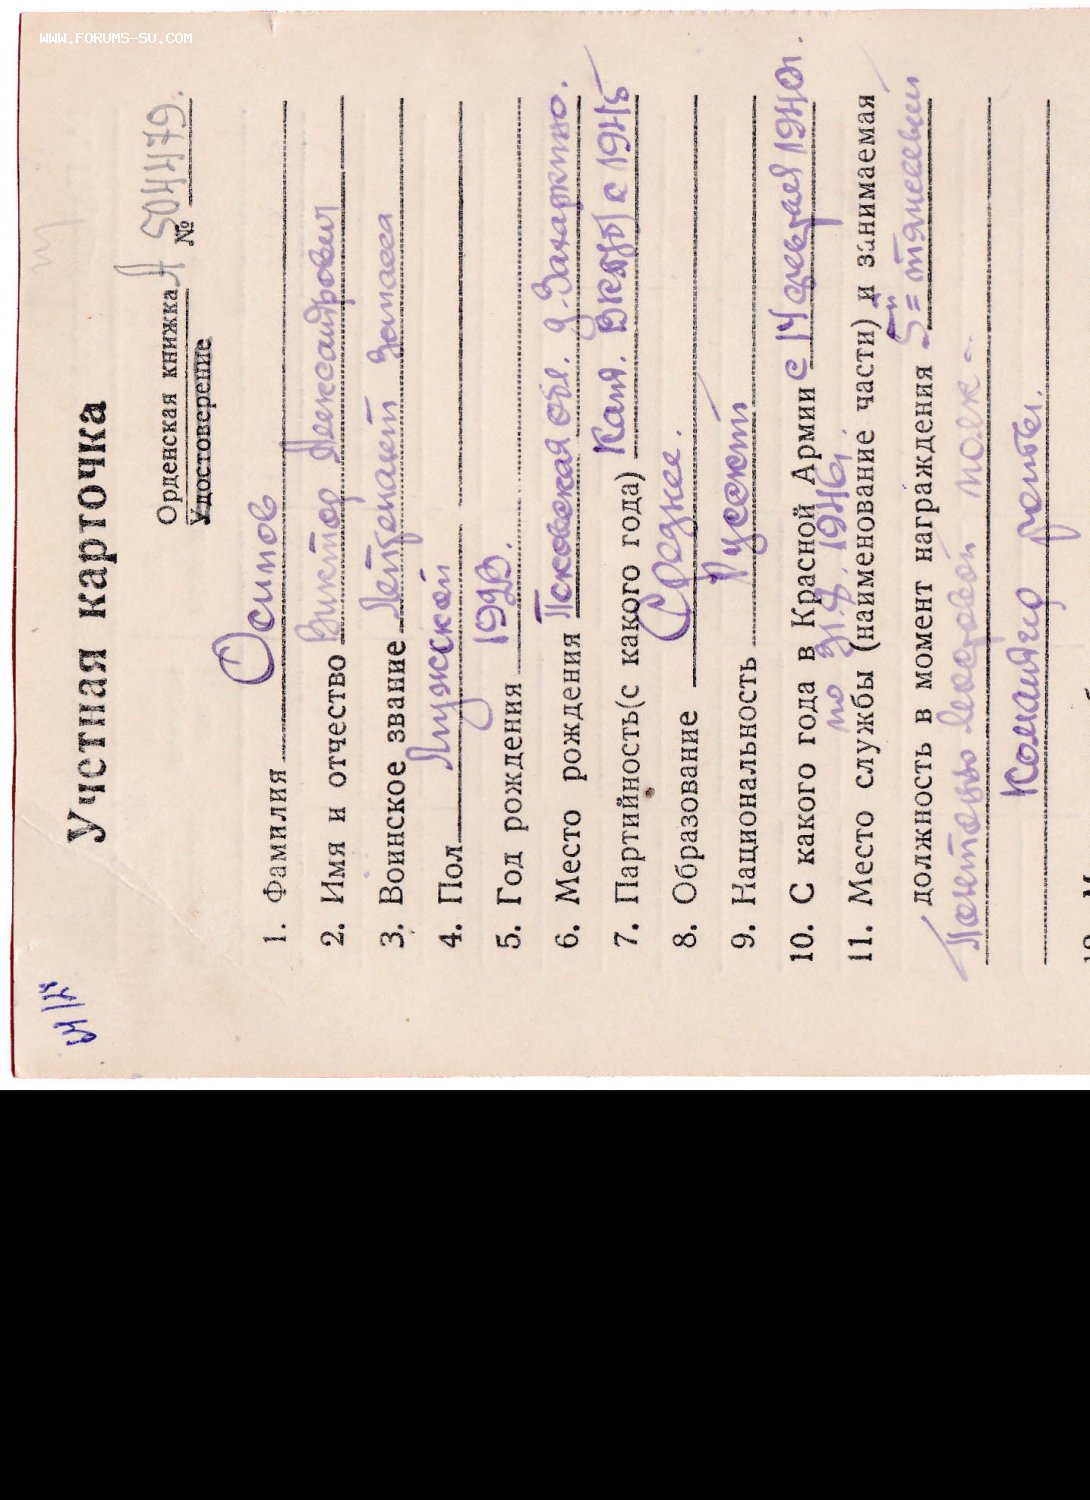 WWW.FORUMS-SU.COM
Учетная карточка
Орденская книжка А № 504479.
Удостоверение
1. Фамилия Осипов
2. Имя и отчество Виктор Александрович
3. Воинское звание Лейтенант запаса
4. Пол Мужской
5. Год рождения
6. Место рождения Псковская обл. д. Захаркино.
7. Партийность(с какого года) Канд. ВКП(б) с 1945
8. Образование Среднее.
9. Национальность Русский
10. С какого года в Красной Армии с 14 февраля 1940г.
по 31.8.1946г.
11. Место службы (наименование части) и занимаемая
должность в момент награждения 5й
полк
Командир роты.